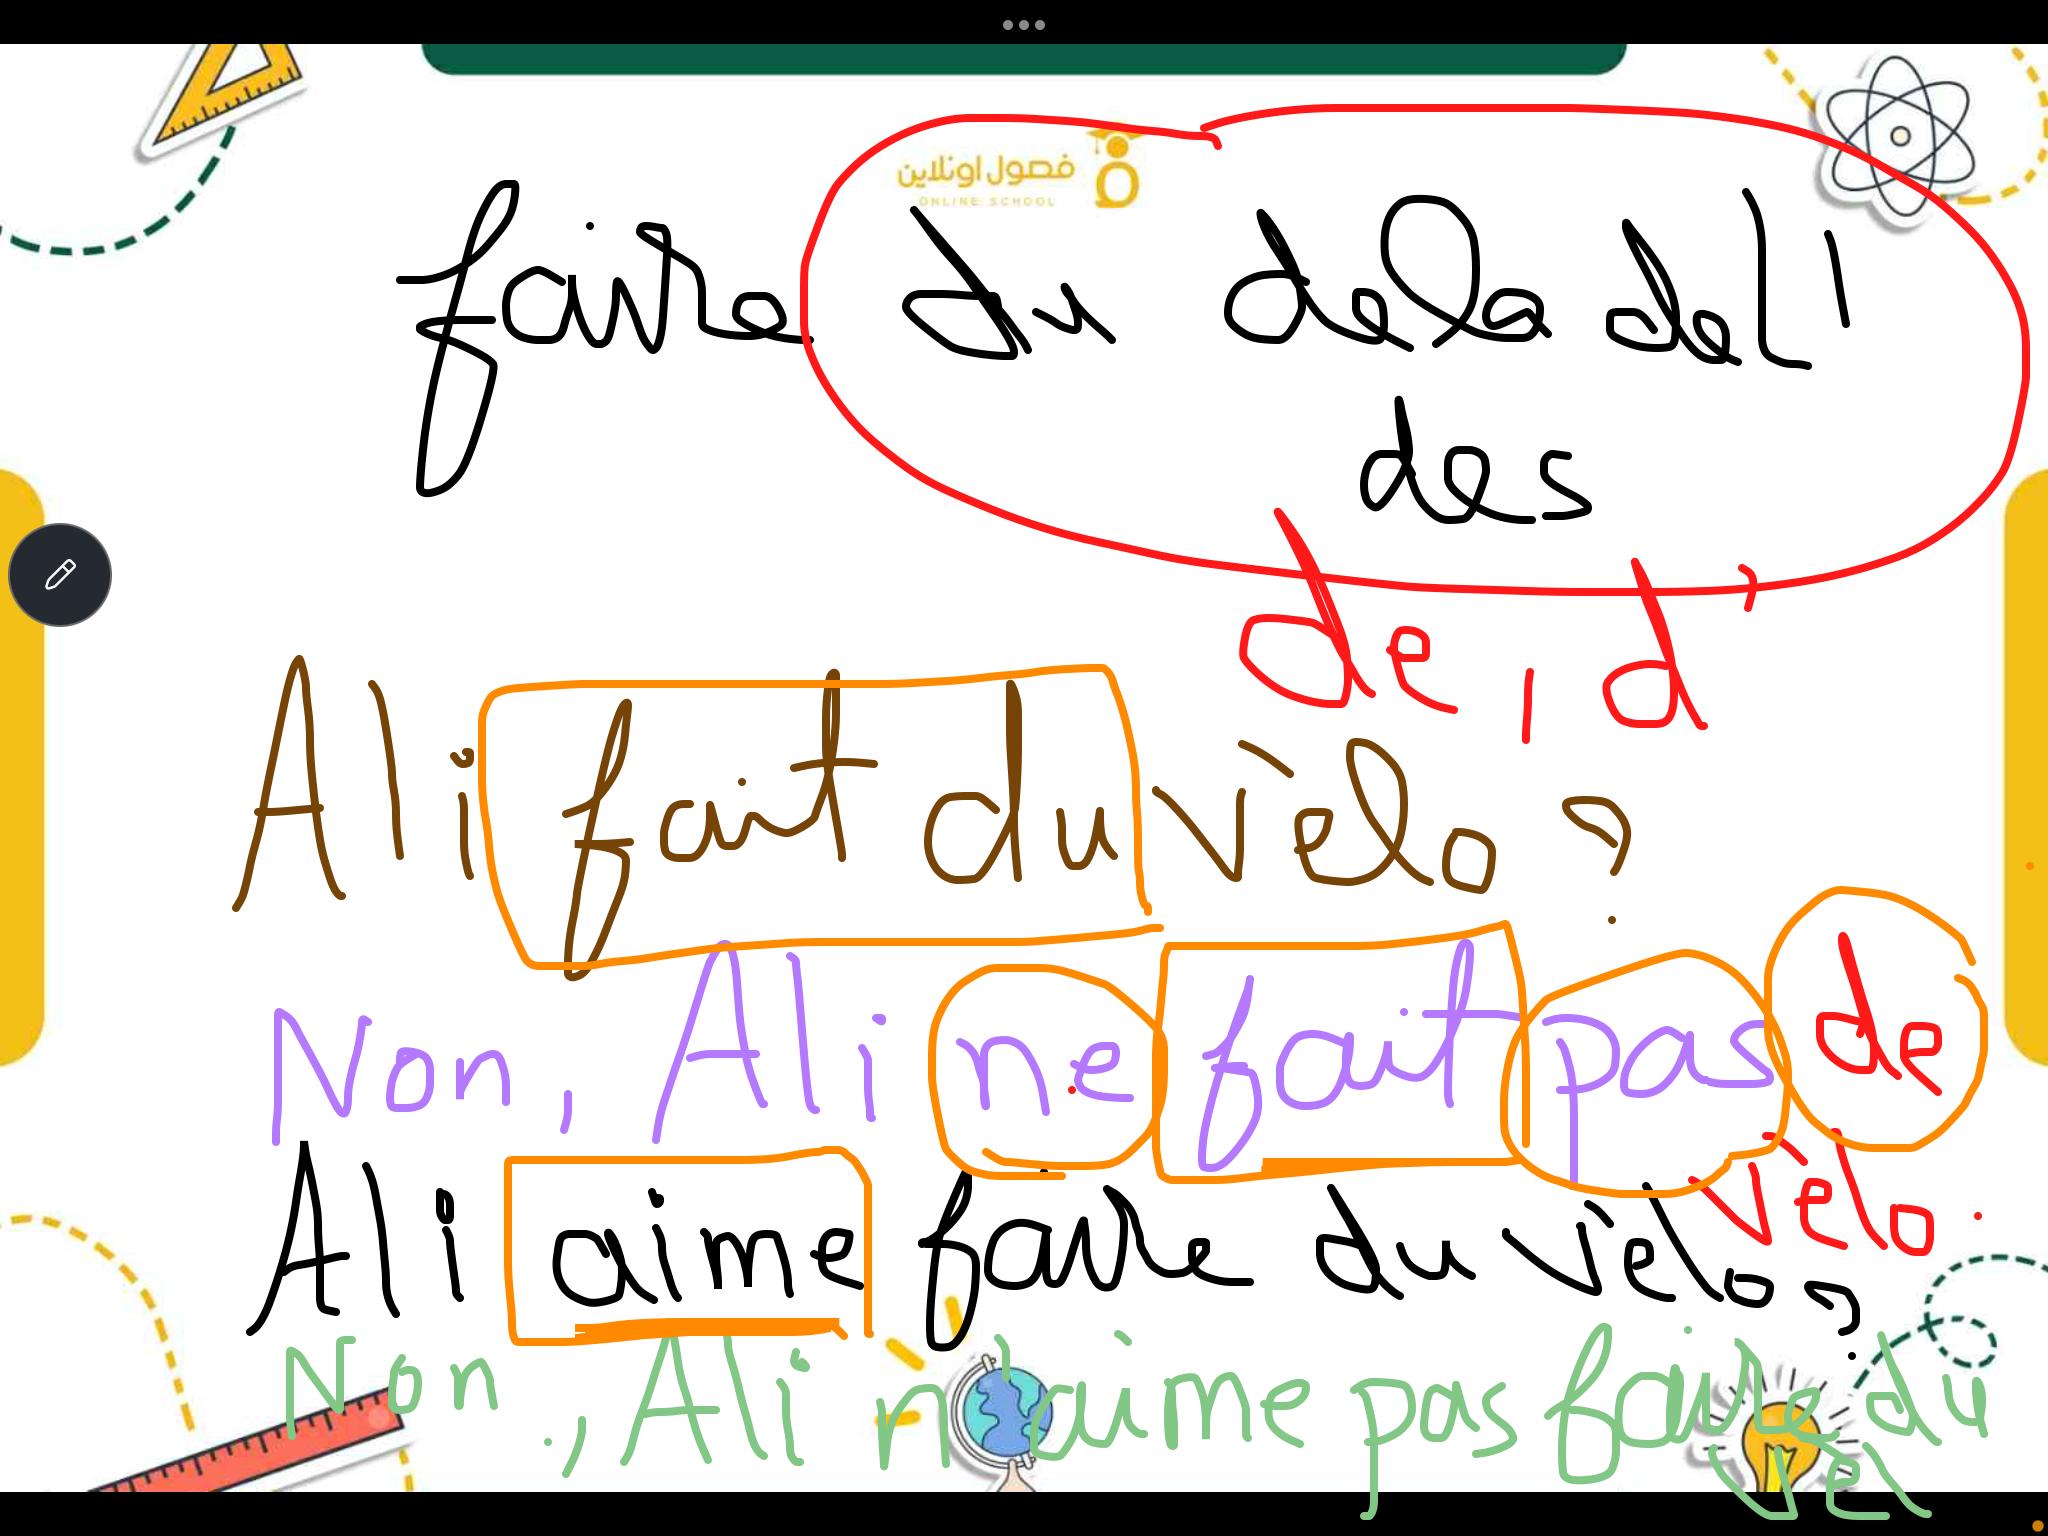 فصول اونلاين
ONLINE SCHOOL
faire du de la de l'
des
de, d'
Ali fait du vèlo ?
Non, Ali ne fait pas de
vèlo.
Ali aime faire du vèlo ?
Non, Ali n'aime pas faire du
vèl